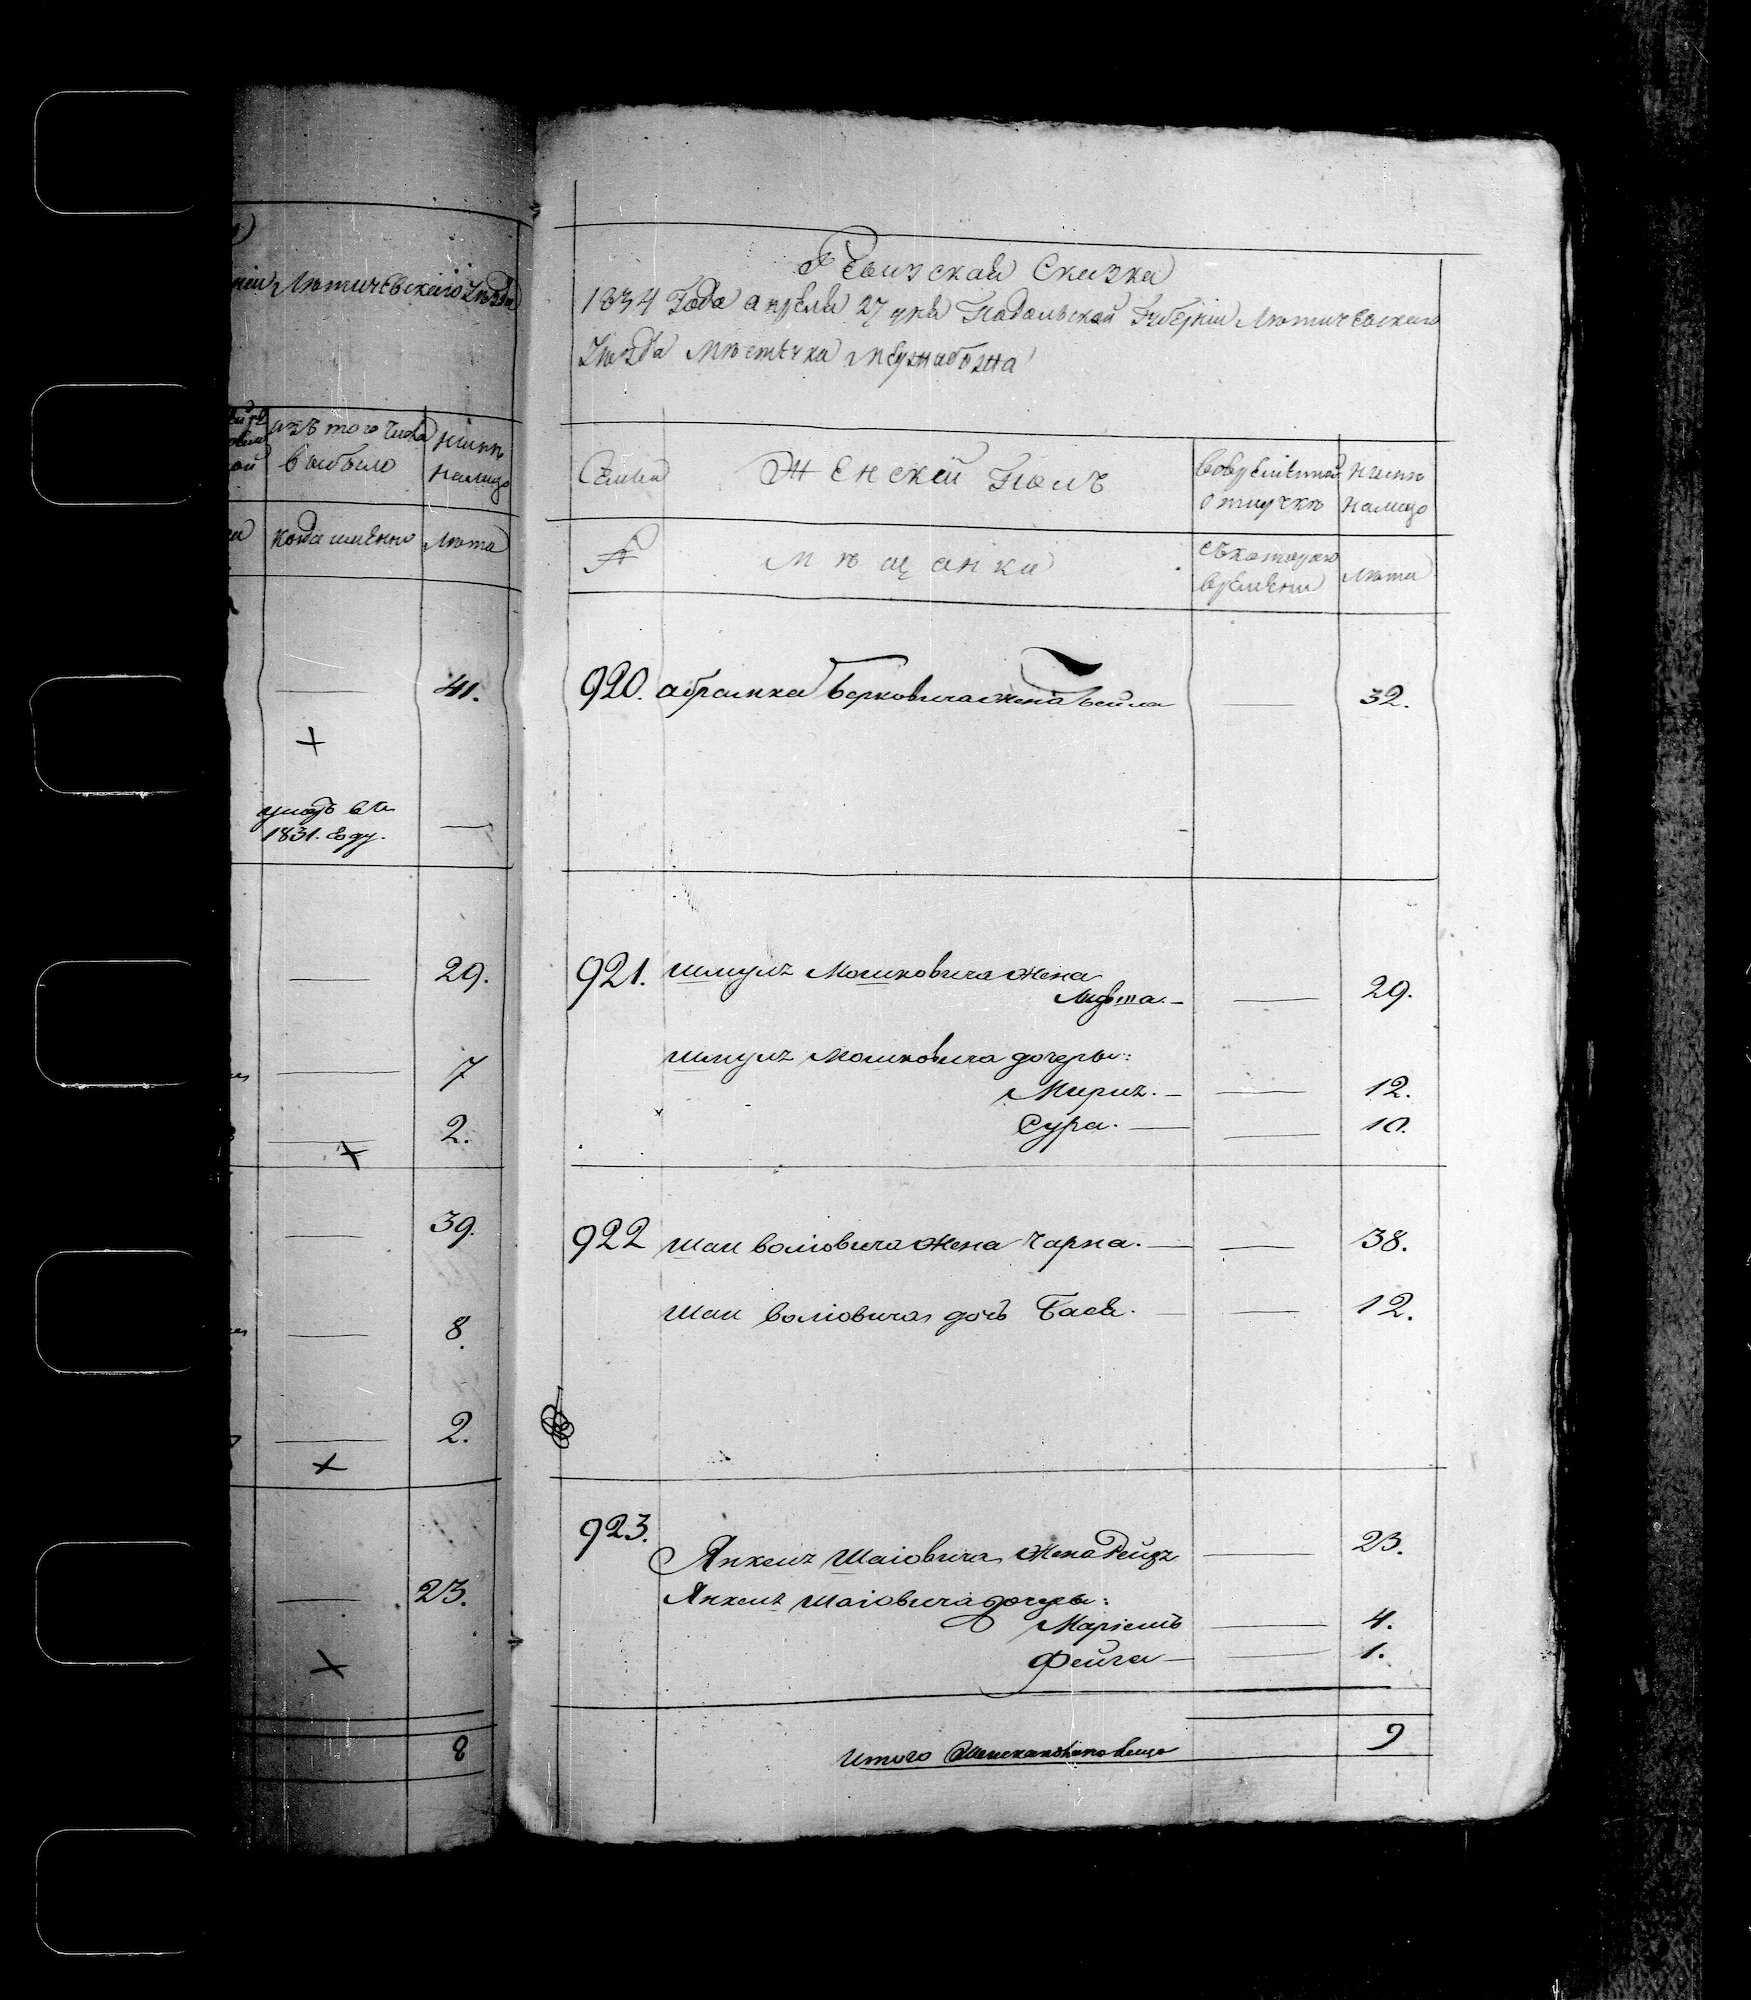 Лѣтичевскаго Уѣзда
изъ того числа
выбыло
нынѣ
налицо
когда именно
лѣта
41.
умеръ въ
1831. году.
29.
7
2.
39.
8.
2.
23.
8
Ревизская Сказка
1834 Года апреля 27 дня Подольской Губерніи Лѣтичевскаго
Уѣзда Мѣстечка Межибожа
Семьи
Женскей Полъ
вовременной
отлучкѣ
нынѣ
налицо
№
мѣщанки
съкотораго
времени
лѣта
920. абрамка Берковича жена Бейла 32.
921. Шмулъ Мошковича жена
Лифша. 29.
Шмулъ Мошковича дочеры:
Миръ. 12.
Сура. 10.
922 Шаи Волговича жена Чарна. 38.
Шаи Волговича дочь Бася. 12.
923.
Янкелъ Шаіовича жена Рейзъ 23.
Янкелъ Шаіовича дочеры:
Маріемъ 4.
Фейга 1.
Итого женска налицо 9